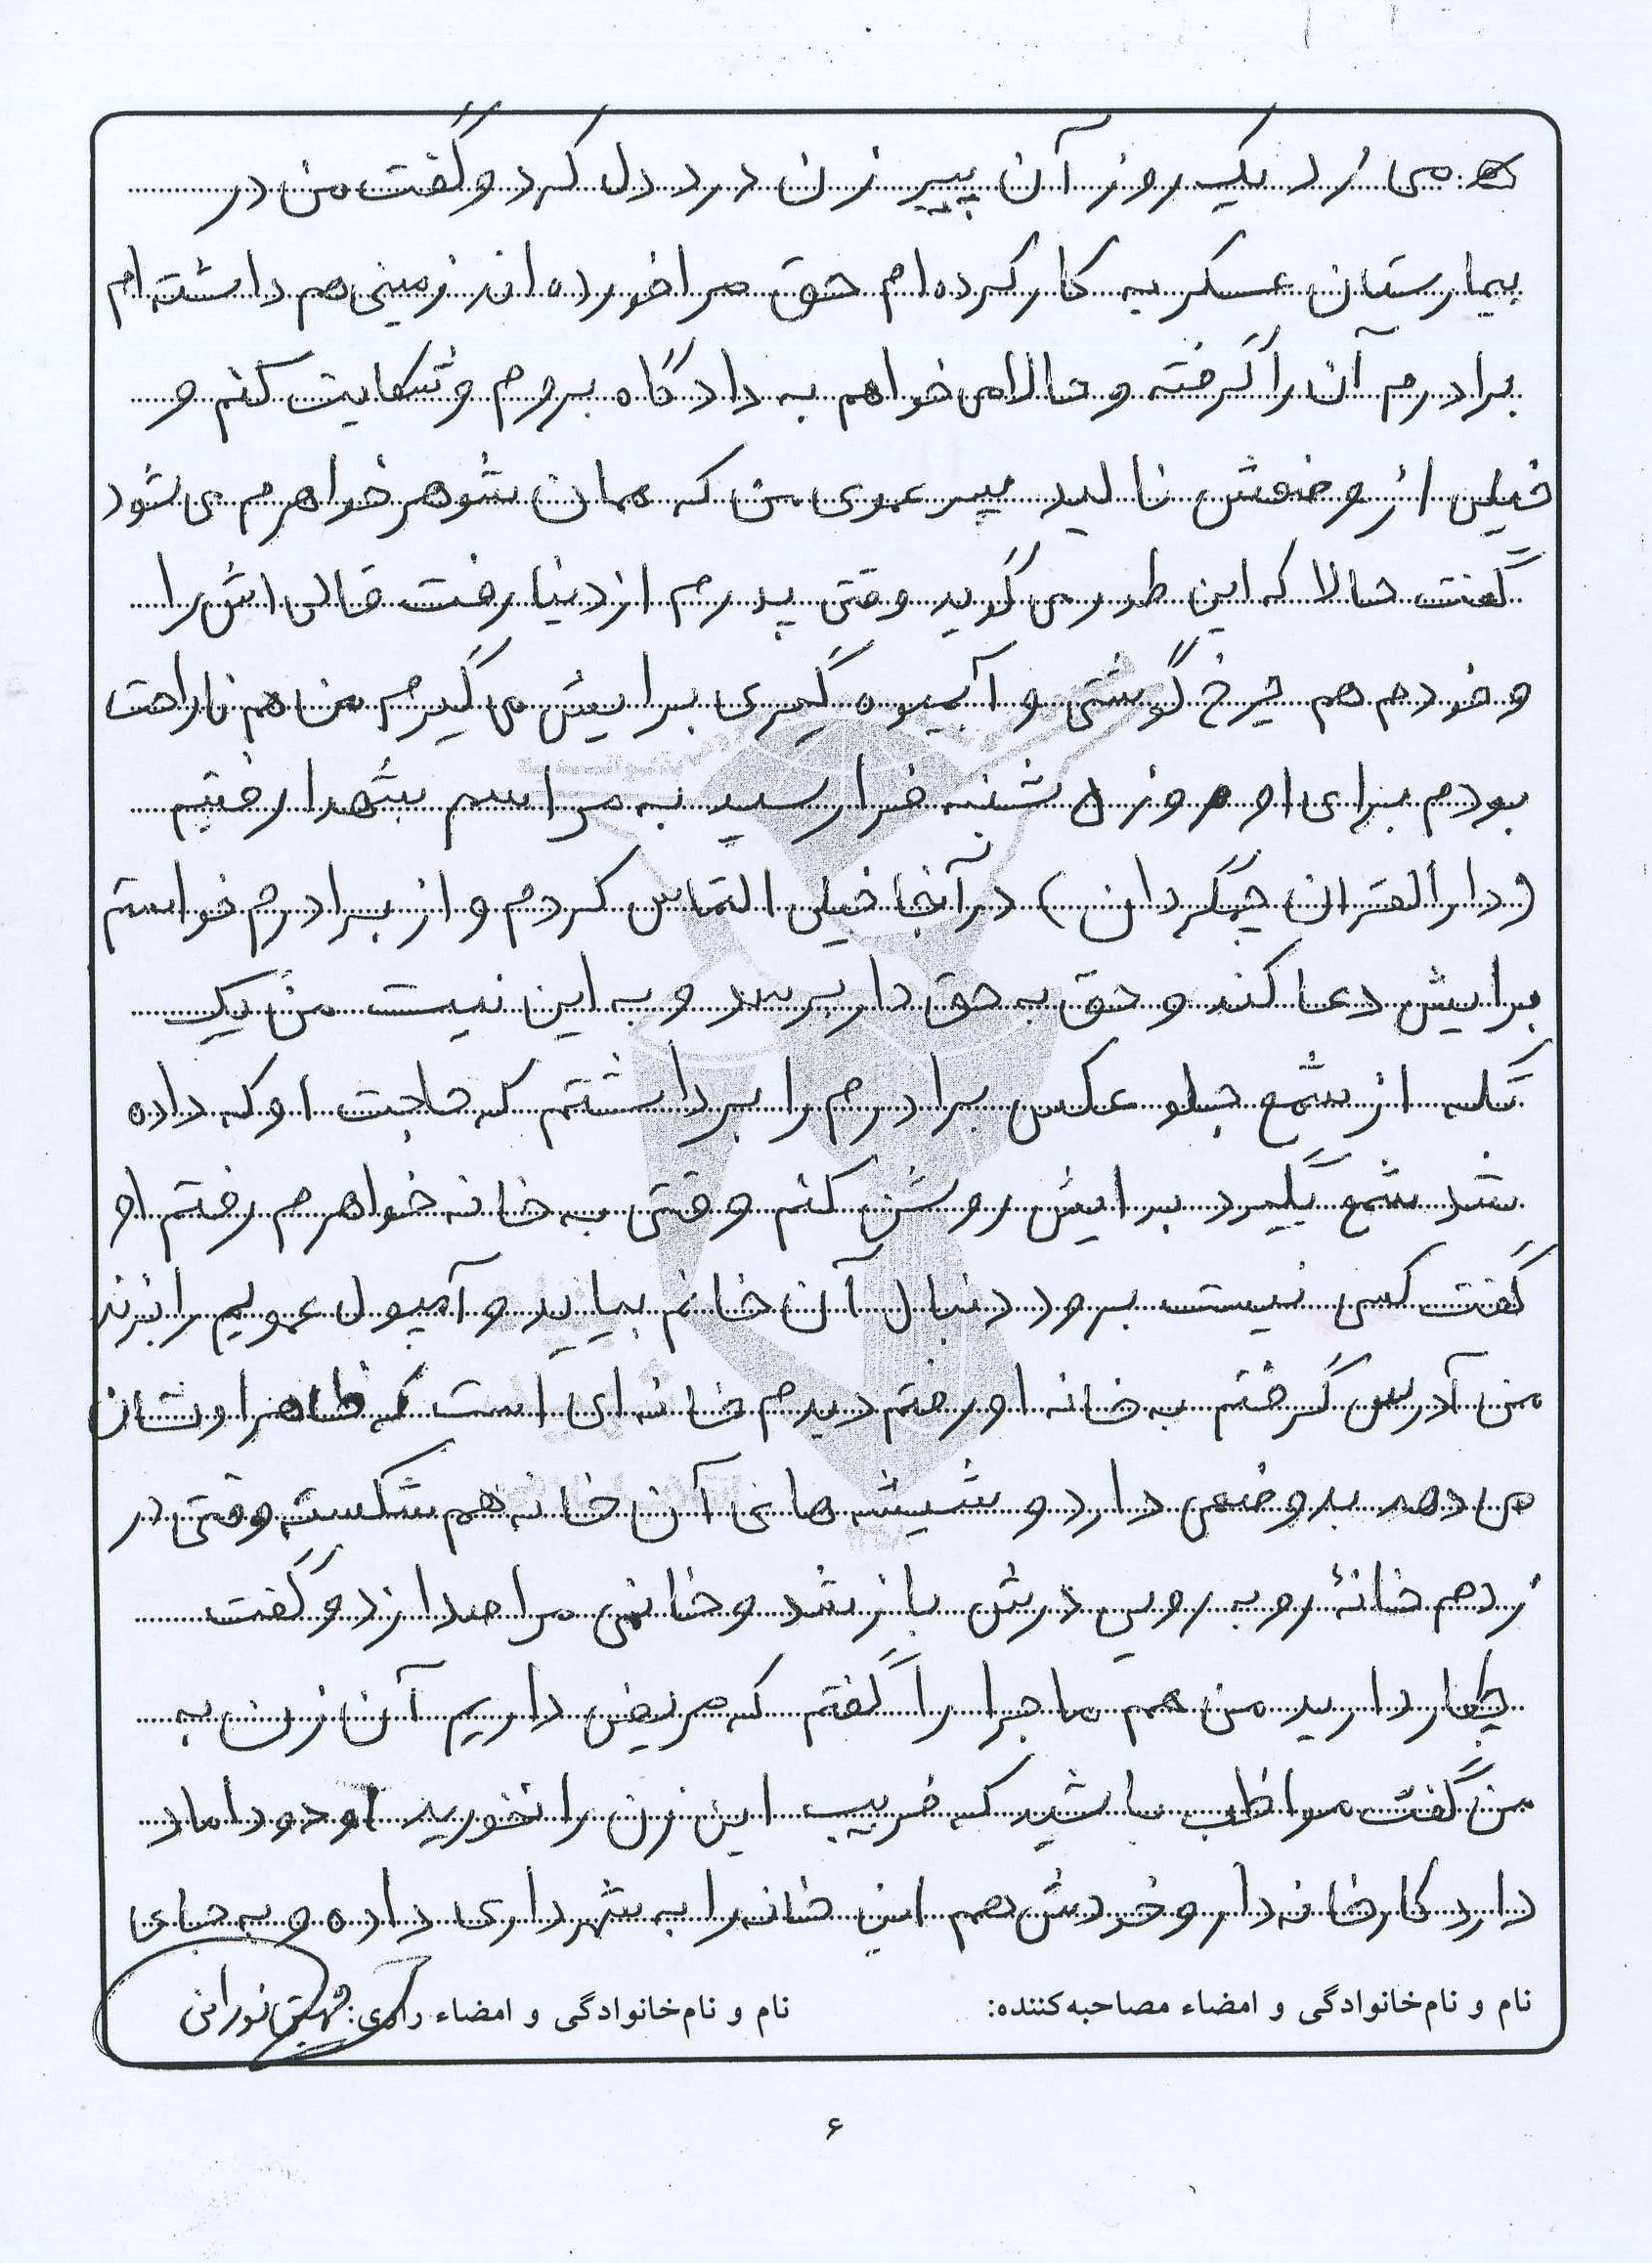 می زد یک روز آن پیر زن درد دل کرد و گفت من در
بیمارستان عسکریه کار کرده ام حق مرا خورده اند زمینی هم داشته ام
برادرم آن را گرفته و حالا می خواهم به دادگاه بروم و شکایت کنم و
خیلی از وضعش نالید پسر عموی من که همان شوهر خواهرم می شود
گفت حالا که این طور می گوید وقتی پدرم از دنیا رفت قالی اش را
و خودم هم چرخ گوشتی و آبمیوه گیری برایش می گیرم من هم ناراحت
بودم برای او روز ۵ شنبه فرا رسید به مراسم شهدا رفتیم
(دارالقران چمگردان) در آنجا خیلی التماس کردم و از برادرم خواستم
برایش دعا کند و حق به حق دار برسد و به این نیست من یک
تکه از شمع جلو عکس برادرم را برداشتم که حاجت او که داده
شد شمع بگیرد برایش روشن کنم وقتی به خانه خواهرم رفتم او
گفت کسی نیست برود دنبال آن خانم بیاید و آمپول عمویم را بزند
من آدرس گرفتم به خانه او رفتم دیدم خانه ای است که ظاهرا نشان
می دهد بد وضعی دارد و شیشه های آن خانه هم شکسته وقتی در
زدم خانهٔ رو به رویی درش باز شد و خانمی مرا صدا زد و گفت
چکار دارید من هم ماجرا را گفتم که مریض داریم آن زن به
من گفت مواظب باشید که فریب این زن را نخورید او دو داماد
دارد کارخانه دار و خودش هم این خانه را به شهرداری داده و به جای
نام و نام‌خانوادگی و امضاء مصاحبه‌کننده: نام و نام‌خانوادگی و امضاء راوی: نورانی
۶